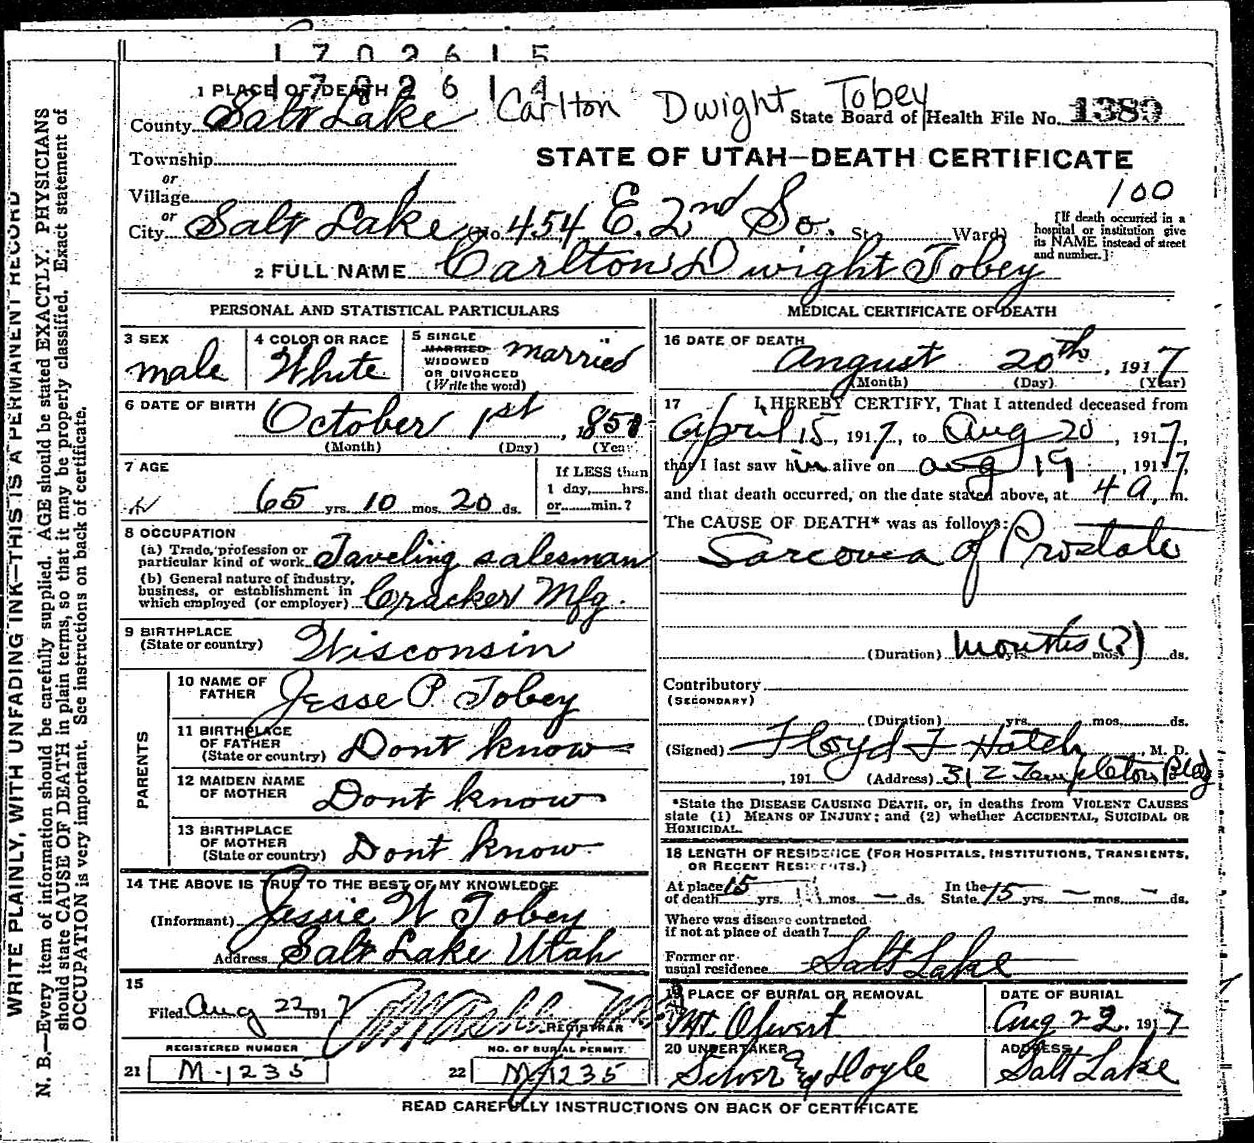 1702615
1702614
1 PLACE OF DEATH
County Salt Lake
Carlton Dwight Tobey
State Board of Health File No. 1389
Township
STATE OF UTAH—DEATH CERTIFICATE
or
Village
100
or
City Salt Lake (No. 454 E. 2nd So. St. Ward)
[If death occurred in a hospital or institution give its NAME instead of street and number.]
2 FULL NAME Carlton Dwight Tobey
PERSONAL AND STATISTICAL PARTICULARS
3 SEX
male
4 COLOR OR RACE
White
5 SINGLE
MARRIED
WIDOWED
OR DIVORCED
(Write the word)
married
6 DATE OF BIRTH
October 1st, 185
(Month) (Day) (Year)
7 AGE
65 yrs. 10 mos. 20 ds.
If LESS than
1 day, hrs.
or min.?
8 OCCUPATION
(a) Trade, profession or
particular kind of work Taveling salesman
(b) General nature of industry,
business, or establishment in
which employed (or employer) Cracker Mfg.
9 BIRTHPLACE
(State or country)
Wisconsin
PARENTS
10 NAME OF
FATHER
Jesse P. Tobey
11 BIRTHPLACE
OF FATHER
(State or country)
Dont know
12 MAIDEN NAME
OF MOTHER
Dont know
13 BIRTHPLACE
OF MOTHER
(State or country)
Dont know
14 THE ABOVE IS TRUE TO THE BEST OF MY KNOWLEDGE
(Informant) Jessie W Tobey
Address Salt Lake Utah
15
Filed Aug 22 1917
REGISTRAR
REGISTERED NUMBER
21 M-1235
NO. OF BURIAL PERMIT.
22 M-1235
MEDICAL CERTIFICATE OF DEATH
16 DATE OF DEATH
August 20th, 1917
(Month) (Day) (Year)
17 I HEREBY CERTIFY, That I attended deceased from
April 15, 1917, to Aug 20, 1917,
that I last saw him alive on aug 19, 1917,
and that death occurred, on the date stated above, at 4 a. m.
The CAUSE OF DEATH* was as follows:
Sarcoma of Prostate
(Duration) Months (?) yrs. mos. ds.
Contributory
(SECONDARY)
(Duration) yrs. mos. ds.
(Signed) Floyd F Hatch, M. D.
, 191 (Address) 312 Templeton Bldg
*State the DISEASE CAUSING DEATH, or, in deaths from VIOLENT CAUSES
state (1) MEANS OF INJURY; and (2) whether ACCIDENTAL, SUICIDAL OR
HOMICIDAL.
18 LENGTH OF RESIDENCE (FOR HOSPITALS, INSTITUTIONS, TRANSIENTS,
OR RECENT RESIDENTS.)
At place
of death 15 yrs. mos. — ds.
In the
State 15 yrs. — mos. — ds.
Where was disease contracted
if not at place of death?
Former or
usual residence Salt Lake
19 PLACE OF BURIAL OR REMOVAL
Mt. Olivert
DATE OF BURIAL
Aug 22. 1917
20 UNDERTAKER
Silver & Hoyle
ADDRESS
Salt Lake
READ CAREFULLY INSTRUCTIONS ON BACK OF CERTIFICATE
WRITE PLAINLY, WITH UNFADING INK—THIS IS A PERMANENT RECORD
N. B.—Every item of information should be carefully supplied. AGE should be stated EXACTLY. PHYSICIANS
should state CAUSE OF DEATH in plain terms, so that it may be properly classified. Exact statement of
OCCUPATION is very important. See instructions on back of certificate.